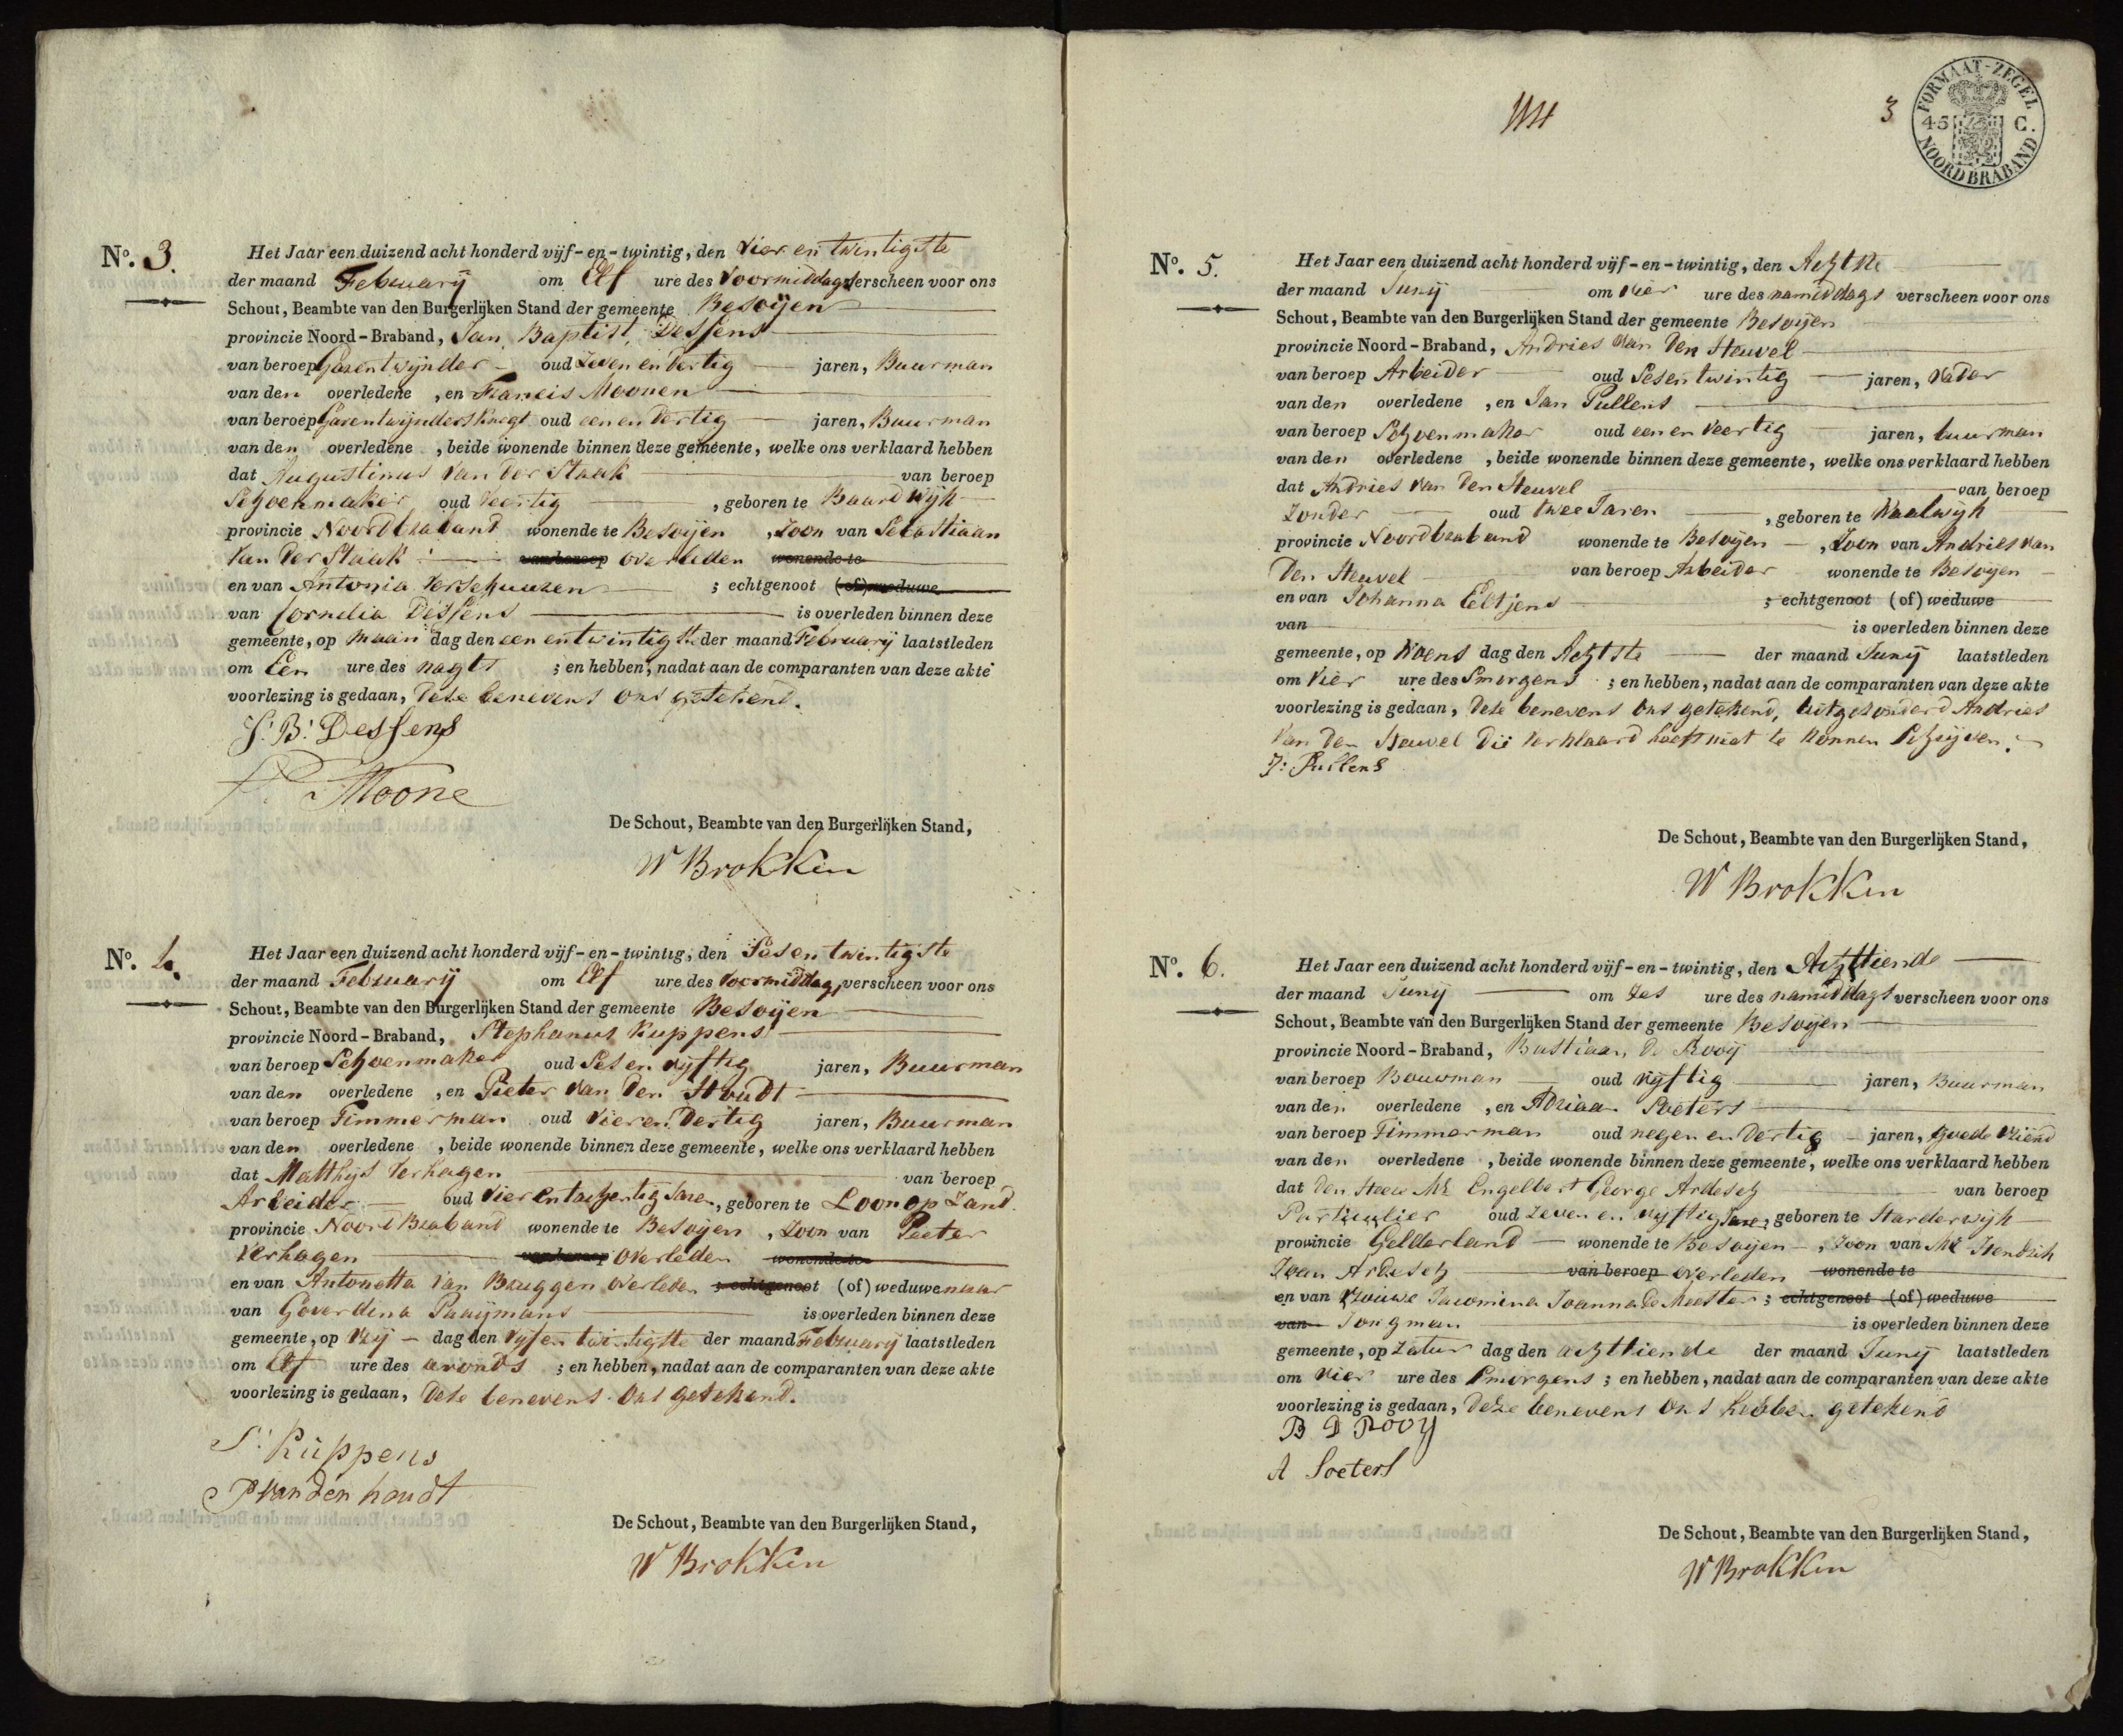 No. 3.
Het Jaar een duizend acht honderd vijf-en-twintig, den Vier en twintigste
der maand February om Elf ure des Voormiddags verscheen voor ons
Schout, Beambte van den Burgerlijken Stand der gemeente Besoijen
provincie Noord-Braband, Jan Baptist Dessens
van beroep Garentwijnder oud Zeven en Dertig jaren, Buurman
van den overledene, en Francis Moonen
van beroep Garentwijnders Knegt oud een en Dertig jaren, Buurman
van den overledene, beide wonende binnen deze gemeente, welke ons verklaard hebben
dat Augustinus Van der Staak van beroep
Schoenmaker oud veertig, geboren te Baardwijk
provincie Noordbraband wonende te Besoijen, Zoon van Sebastiaan
Van der Staak van beroep overleden wonende te
en van Antonia Verschuuren; echtgenoot (of) weduwe
van Cornelia Dessens is overleden binnen deze
gemeente, op maan dag den een en twintigste der maand February laatstleden
om Een ure des nagts; en hebben, nadat aan de comparanten van deze akte
voorlezing is gedaan, Dese benevens Ons getekend.
J: B: Dessens
F. Moone
De Schout, Beambte van den Burgerlijken Stand,
W Brokken
No. 4.
Het Jaar een duizend acht honderd vijf-en-twintig, den Sesen twintigste
der maand February om Elf ure des Voormiddag, verscheen voor ons
Schout, Beambte van den Burgerlijken Stand der gemeente Besoijen
provincie Noord-Braband, Stephanus Kuppens
van beroep Schoenmaker oud Ses en vijftig jaren, Buurman
van den overledene, en Pieter Van Den Houdt
van beroep Timmerman oud Vier en Dertig jaren, Buurman
van den overledene, beide wonende binnen deze gemeente, welke ons verklaard hebben
dat Matthijs Verhagen van beroep
Arbeider oud Vier en tachentig Jare, geboren te Loon op Zand
provincie Noord Braband wonende te Besoijen, Zoon van Peeter
Verhagen van beroep Overleden wonende te
en van Antonetta Van Bruggen Overleden; echtgenoot (of) weduwenaar
van Goverdina Paaijmans is overleden binnen deze
gemeente, op Vrij dag den Vijf en twintigste der maand February laatstleden
om Elf ure des avonds; en hebben, nadat aan de comparanten van deze akte
voorlezing is gedaan, Dese benevens Ons getekend.
S: Kuppens
P van den houdt
De Schout, Beambte van den Burgerlijken Stand,
W Brokken
3
FORMAAT-ZEGEL
45 C.
NOORDBRABAND
No. 5.
Het Jaar een duizend acht honderd vijf-en-twintig, den Achtste
der maand Junij om Vier ure des namiddags verscheen voor ons
Schout, Beambte van den Burgerlijken Stand der gemeente Besoijen
provincie Noord-Braband, Andries Van Den Heuvel
van beroep Arbeider oud Sesentwintig jaren, Vader
van den overledene, en Jan Pullens
van beroep Schoenmaker oud een en Veertig jaren, buurman
van den overledene, beide wonende binnen deze gemeente, welke ons verklaard hebben
dat Andries Van Den Heuvel van beroep
Zonder oud twee Jaren, geboren te Waalwijk
provincie Noordbraband wonende te Besoijen, Zoon van Andries Van
Den Heuvel van beroep Arbeider wonende te Besoijen
en van Johanna Eeltjens; echtgenoot (of) weduwe
van is overleden binnen deze
gemeente, op Woens dag den Achtste der maand Junij laatstleden
om Vier ure des Smorgens; en hebben, nadat aan de comparanten van deze akte
voorlezing is gedaan, Dese benevens Ons getekend, Uitgesonderd Andries
Van Den Heuvel Die Verklaard heeft niet te konnen Schrijven.
J: Pullens
De Schout, Beambte van den Burgerlijken Stand,
W Brokken
No. 6.
Het Jaar een duizend acht honderd vijf-en-twintig, den Achttiende
der maand Junij om Zes ure des namiddags verscheen voor ons
Schout, Beambte van den Burgerlijken Stand der gemeente Besoijen
provincie Noord-Braband, Bastiaan De Rooij
van beroep Bouwman oud vijftig jaren, Buurman
van den overledene, en Adriaan Soeters
van beroep Timmerman oud negen en Dertig jaren, goede Vriend
van den overledene, beide wonende binnen deze gemeente, welke ons verklaard hebben
dat Den Heer Mr Engelbert George Ardesch van beroep
Partiqulier oud Zeven en vijftig Jare, geboren te Harderwijk
provincie Gelderland wonende te Besoijen, Zoon van Mr Hendrik
Joan Ardesch van beroep overleden wonende te
en van Vrouwe Jacomina Joanna De Meester; echtgenoot (of) weduwe
van Jongman is overleden binnen deze
gemeente, op Zatur dag den achttiende der maand Junij laatstleden
om Vier ure des Smorgens; en hebben, nadat aan de comparanten van deze akte
voorlezing is gedaan, Deze benevens Ons hebben getekend
B D Rooy
A Soeters
De Schout, Beambte van den Burgerlijken Stand,
W Brokken